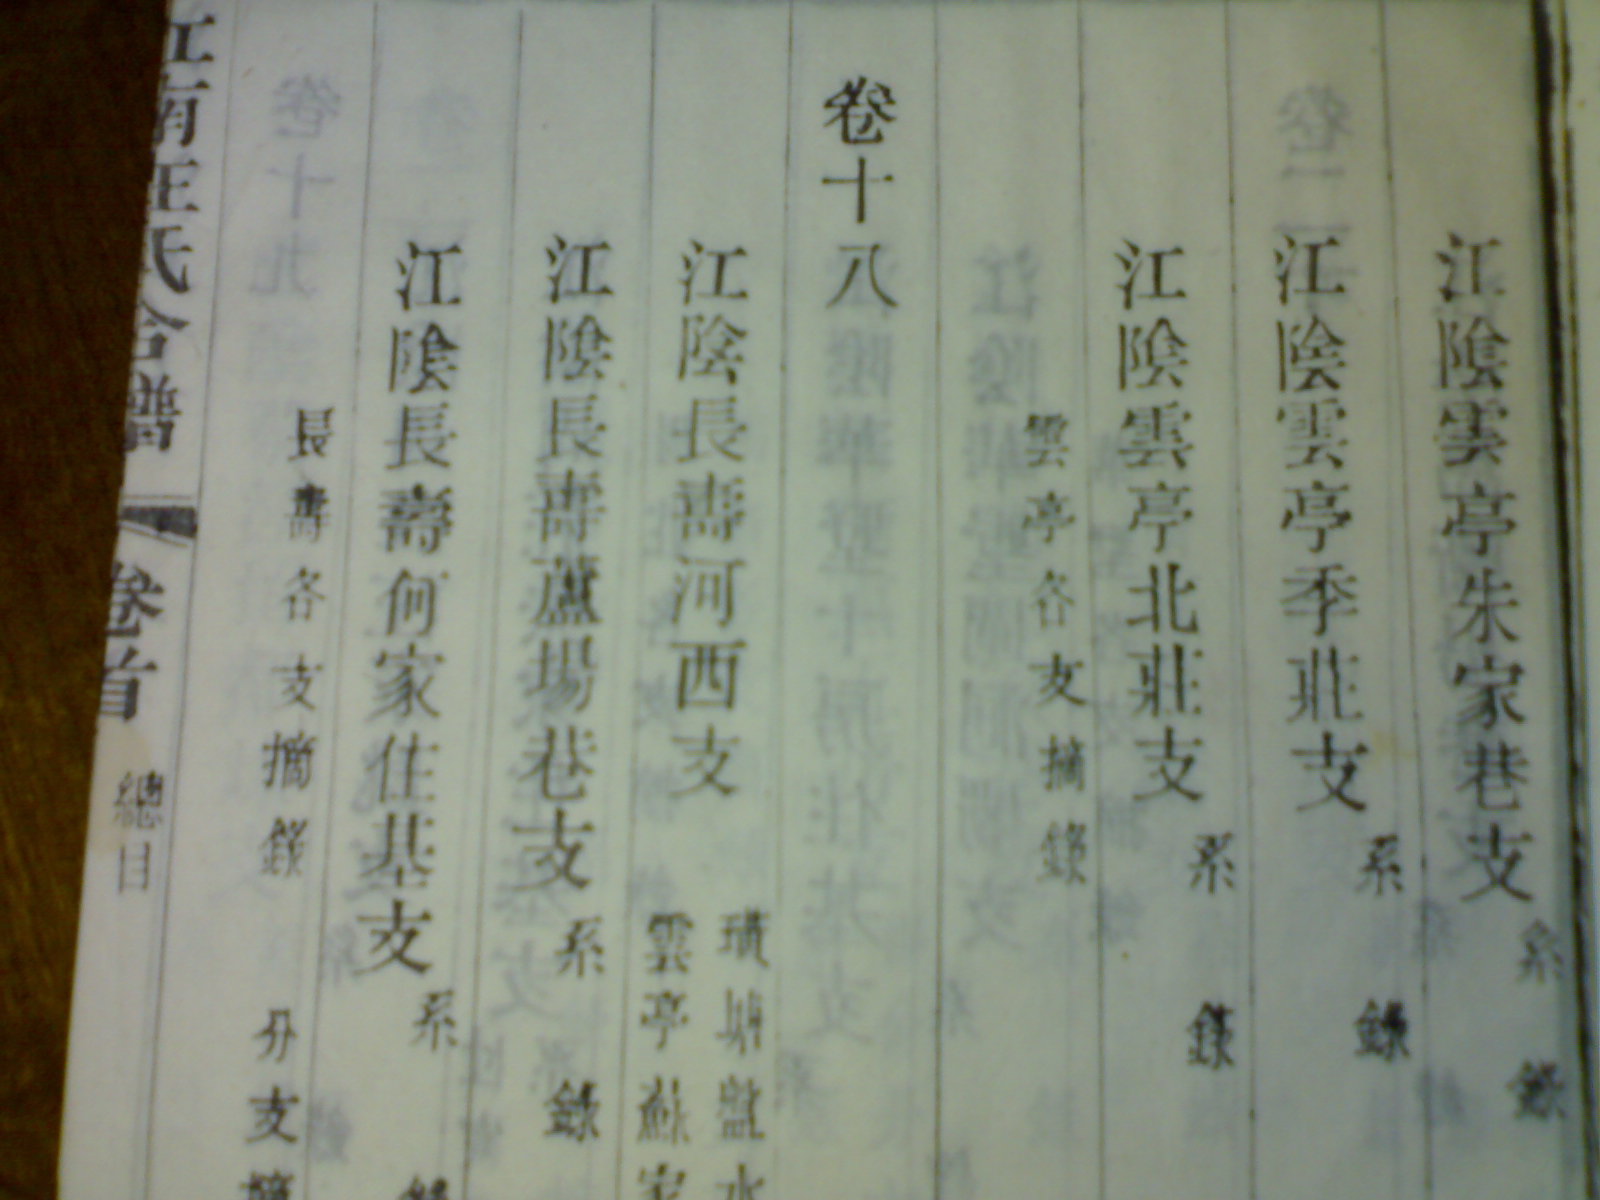 江陰雲亭朱家巷支 系 錄
江陰雲亭季莊支 系 錄
江陰雲亭北莊支 系 錄
雲亭各支摘錄
卷十八
江陰長壽河西支
璜塘
水
雲亭蘇家
江陰長壽蘆場巷支 系 錄
江陰長壽何家住基支 系 錄
長壽各支摘錄 分支
江南王氏合譜 卷首 總目